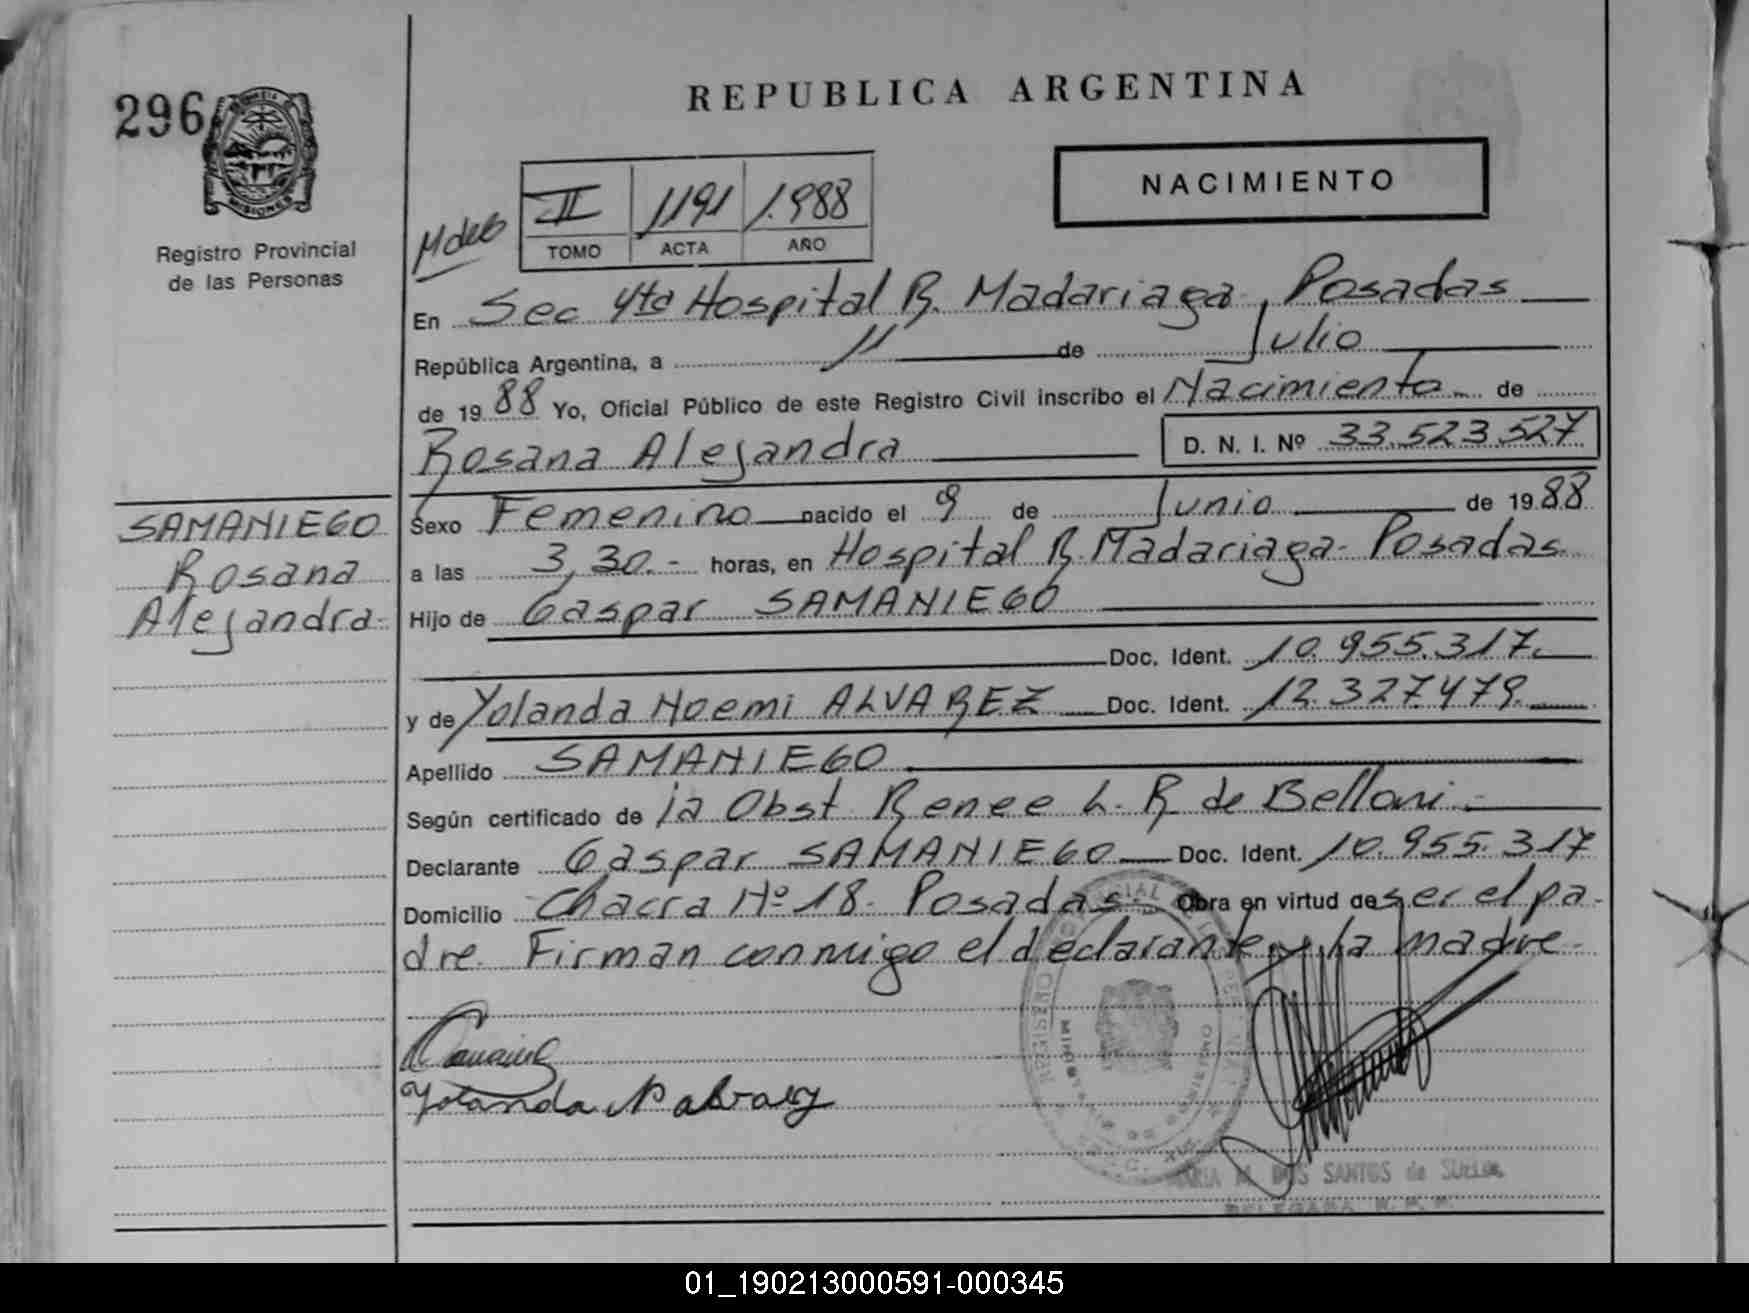 REPUBLICA ARGENTINA
296
MISIONES
Registro Provincial
de las Personas
NACIMIENTO
II 1191 1.988
TOMO ACTA AÑO
En Sec 4ta Hospital R. Madariaga, Posadas
República Argentina, a 11 de Julio
de 1988 Yo, Oficial Público de este Registro Civil inscribo el Nacimiento de
Rosana Alejandra D. N. I. Nº 33.523.527
SAMANIEGO
Rosana
Alejandra.
Sexo Femenino nacido el 9 de Junio de 1988
a las 3,30.- horas, en Hospital R. Madariaga- Posadas
Hijo de Gaspar SAMANIEGO
Doc. Ident. 10.955.317.
y de Yolanda Noemi ALVAREZ Doc. Ident. 12.327.479.
Apellido SAMANIEGO
Según certificado de la Obst Renee L. R. de Belloni.-
Declarante Gaspar SAMANIEGO Doc. Ident. 10.955.317
Domicilio Chacra Nº 18. Posadas. Obra en virtud de ser el pa-
dre. Firman conmigo el declarante y la madre.
Yolanda N
MARIA M. DOS SANTOS de
DELEGADA R. P. P.
01_190213000591-000345